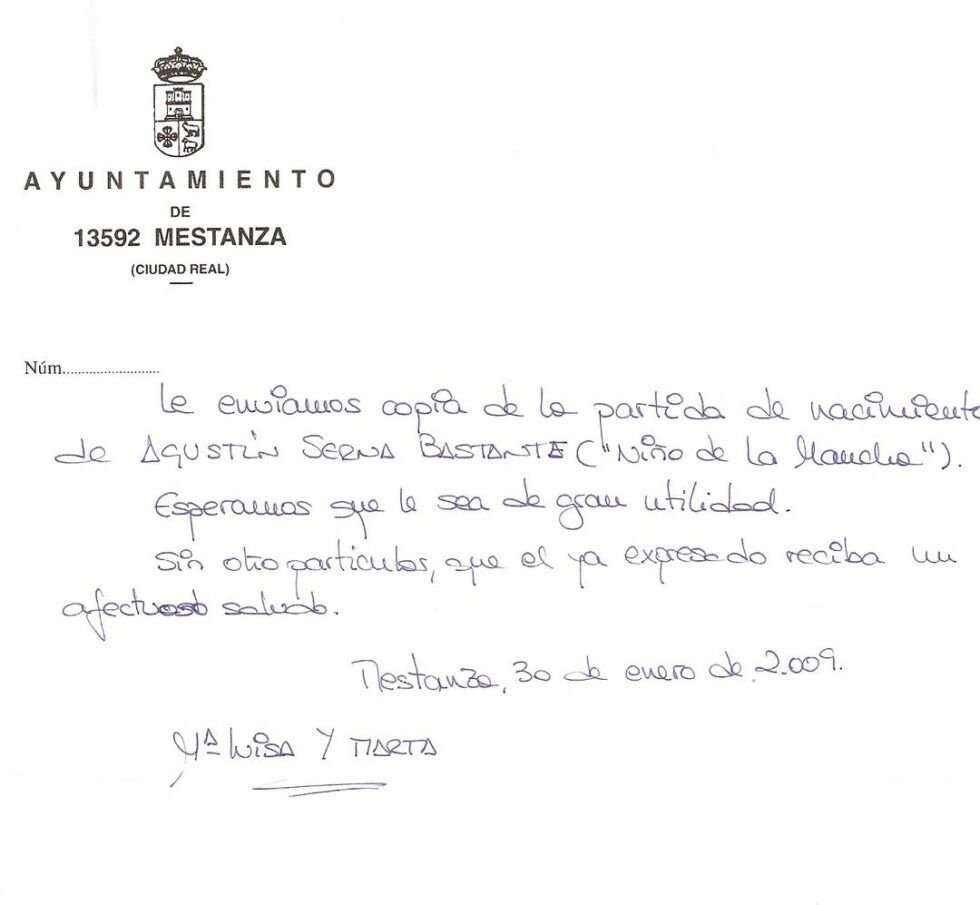 AYUNTAMIENTO
DE
13592 MESTANZA
(CIUDAD REAL)
Núm..........................
Le enviamos copia de la partida de nacimiento
de AGUSTÍN SERNA BASTANTE ("Niño de La Mancha").
Esperamos que le sea de gran utilidad.
Sin otro particular, que el ya expresado reciba un
afectuoso saludo.
Mestanza, 30 de enero de 2.009.
Mª Luisa Y MARTA